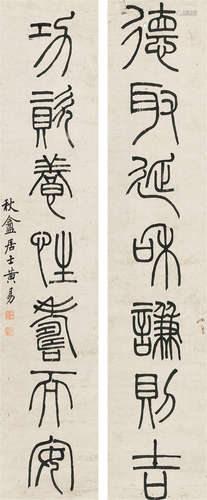 德取延和謙則吉
功資養性壽而安
秋盦居士黃易